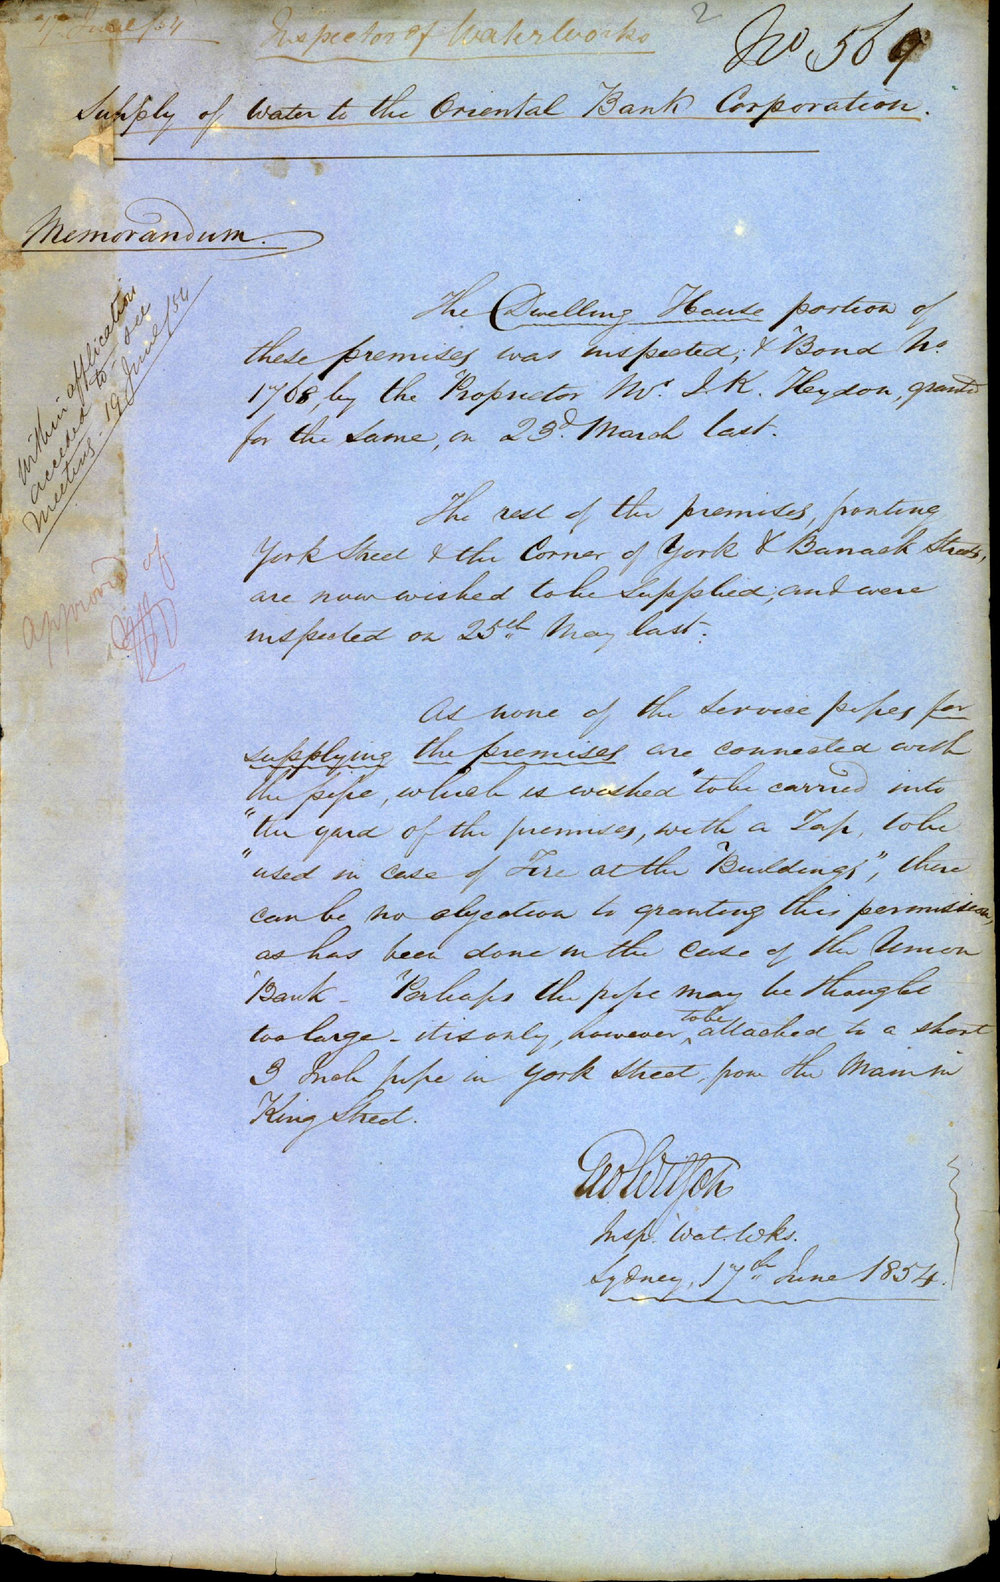 17 June /54
Inspector of Waterworks
2
No. 569
Supply of Water to the Oriental Bank Corporation.
Memorandum.
Within application
acceded to, see
Meeting. 19 June /54
approved of
The Dwelling House portion of
these premises, was inspected; & Bond No.
1768, by the Proprietor Mr. J. K. Heydon, grantd
for the same, on 23d. March last.
The rest of the premises, fronting
York Street & the Corner of York & Barrack Streets,
are now wished to be supplied; and were
inspected on 25th. May last.
As none of the service pipes for
supplying the premises are connected with
the pipe, which is wished "to be carried into
"the yard of the premises, with a Tap, to be
"used in case of Fire at the Buildings", there
can be no objection to granting this permission,
as has been done in the case of the Union
Bank - Perhaps the pipe may be thought
too large - it is only, however, to be attached to a short
3 Inch pipe in York Street, from the Main in
King Street.
Insp. Wat. Wks.
Sydney, 17th. June 1854.